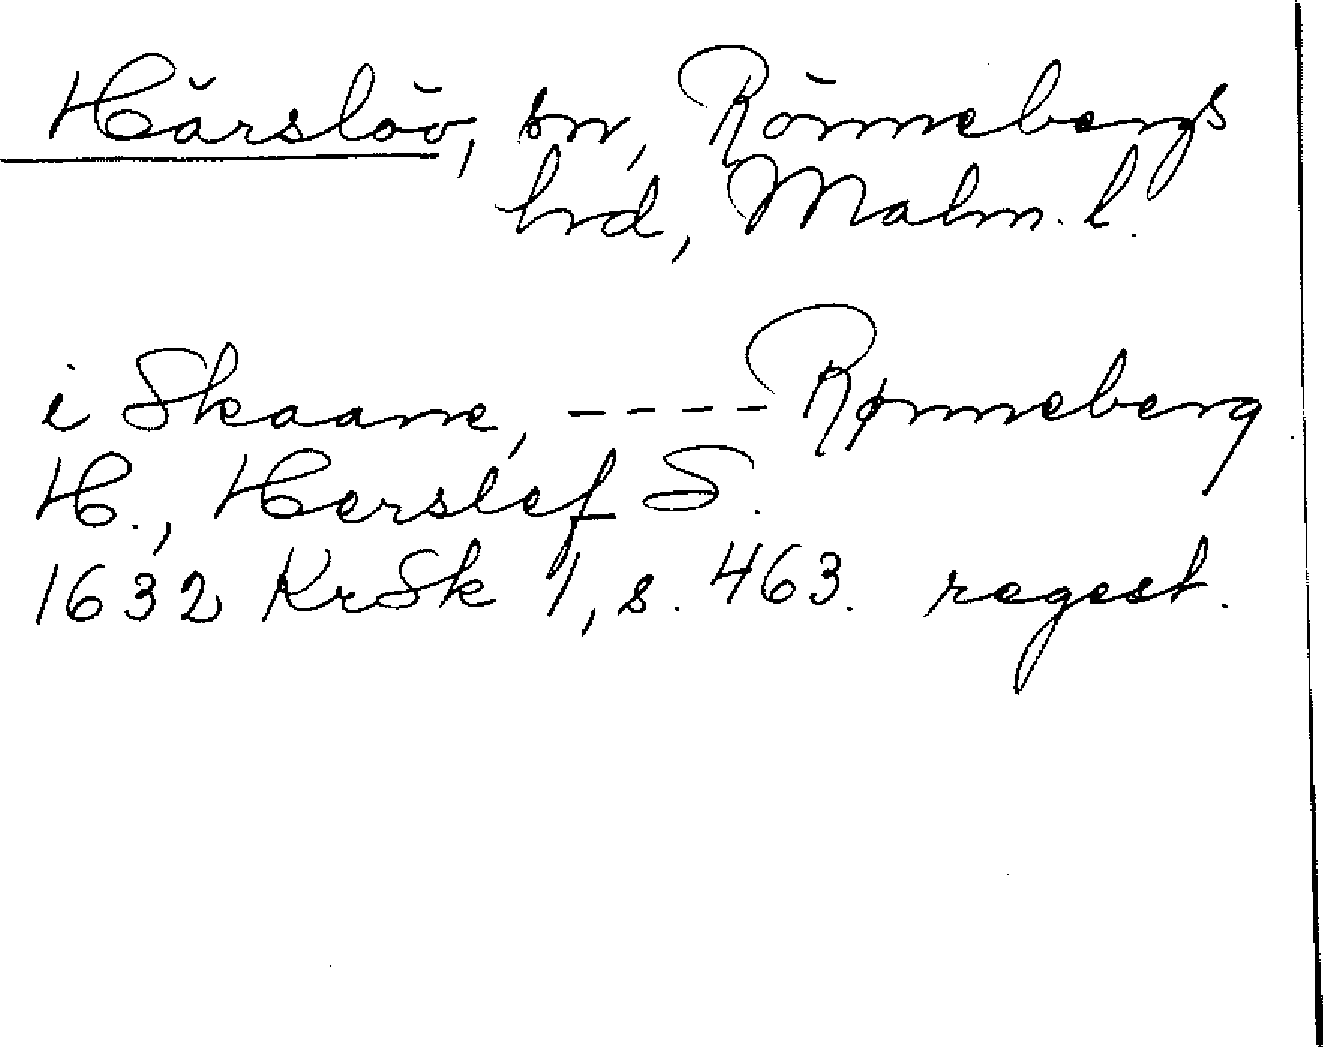 Härslöv, sn, Rönnebergs
hrd, Malm. l.
i Skaane, ---- Rønneberg
H., Herslef S.
1632 KrSk 1, s. 463. regest.